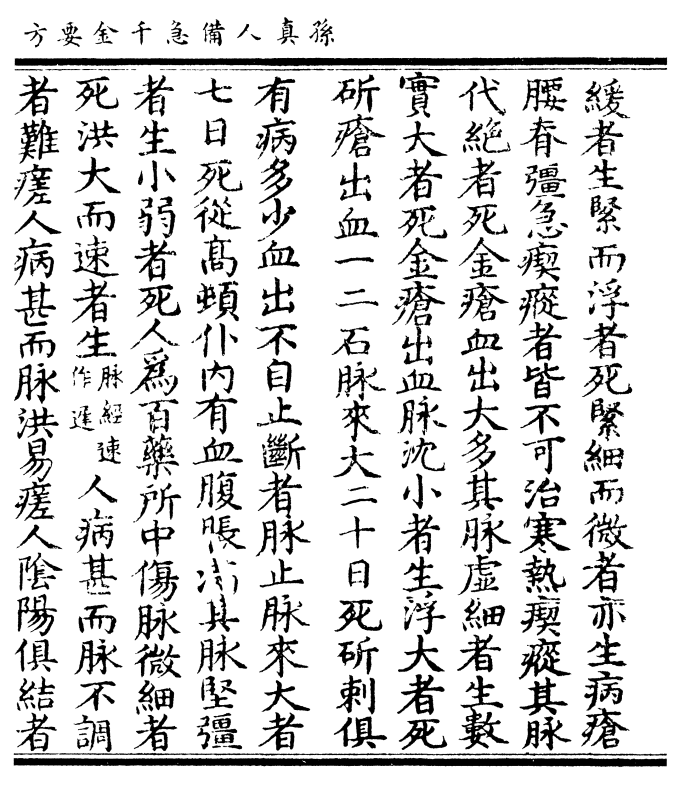 孫真人備急千金要方
緩者生緊而浮者死緊細而微者亦生病瘡
腰脊彊急瘈瘲者皆不可治寒熱瘈瘲其脉
代絕者死金瘡血出大多其脉虛細者生數
實大者死金瘡出血脉沈小者生浮大者死
斫瘡出血一二石脉來大二十日死斫刺俱
有病多少血出不自止斷者脉止脉來大者
七日死從髙頓仆内有血腹脹滿其脉堅彊
者生小弱者死人爲百藥所中傷脉微細者
死洪大而速者生脉經速作遲人病甚而脉不調
者難瘥人病甚而脉洪易瘥人隂陽俱結者